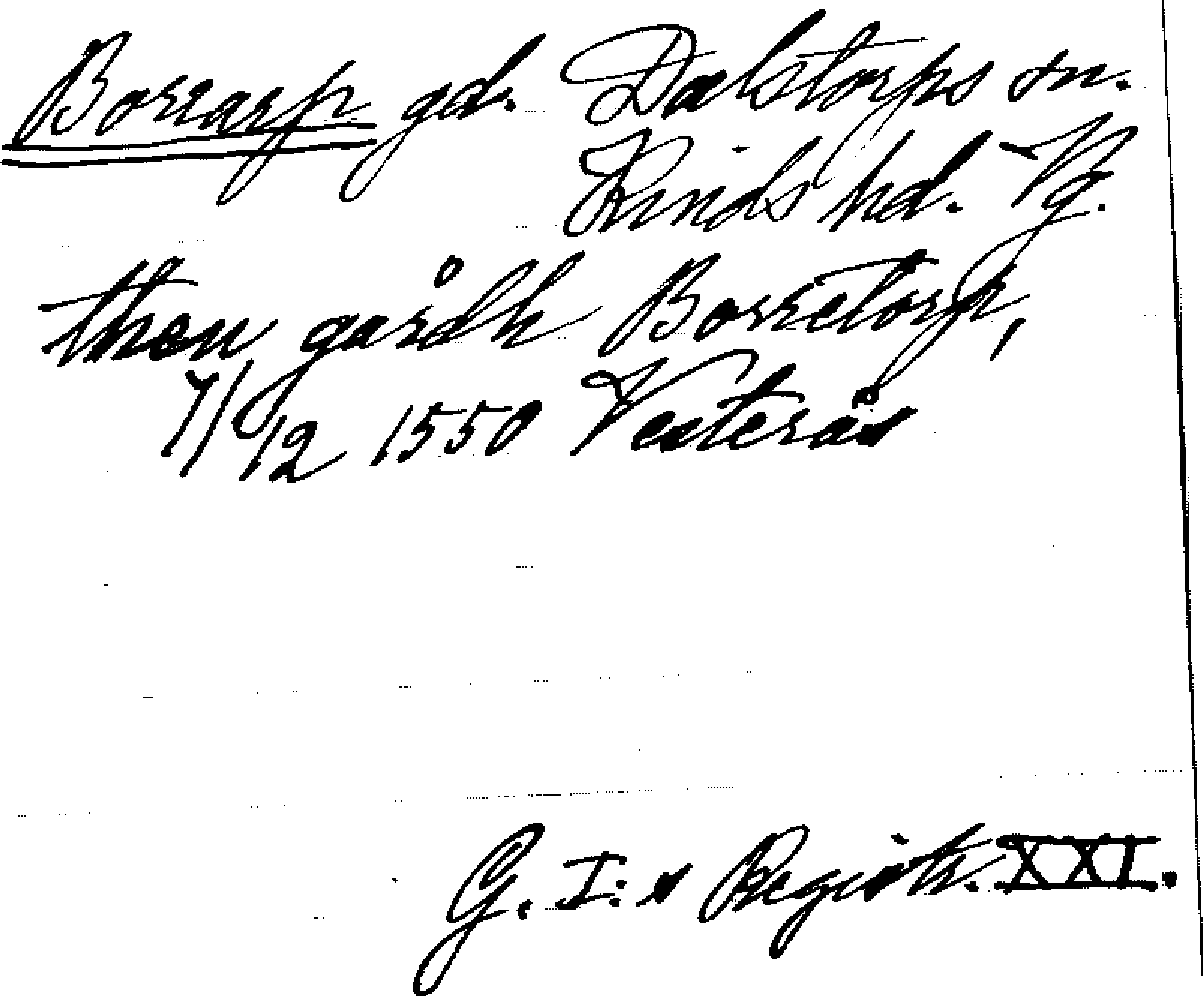 Borrarp gd. Dalstorps sn.
Kinds hd. Vg.
then gårdh Borretorp,
7/12 1550 Vesterås
G. I:s Registr. XXI.